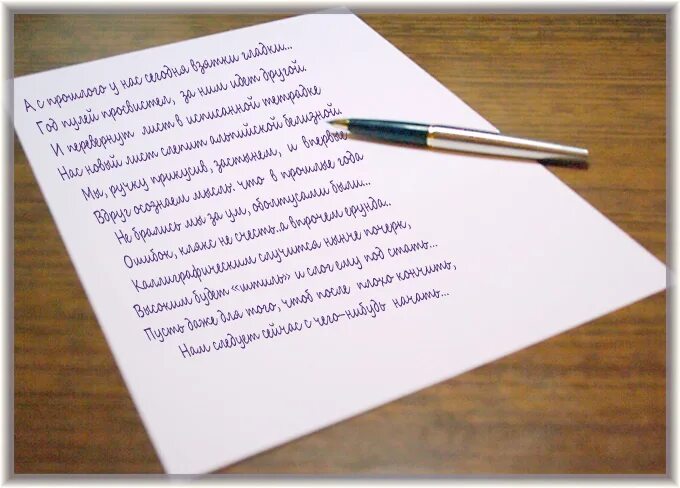 А с прошлого у нас сегодня взятки гладки...
Год пулей просвистел, за ним идет другой.
И перевернут лист в исписанной тетрадке
Нас новый лист слепит альпийской белизной.
Мы, ручку прикусив, застынем, и впервые
Вдруг осознаем мысль: что в прошлые года
Не брались мы за ум, оболтусами были...
Ошибок, клякс не счесть.а впрочем ерунда..
Каллиграфическим случится нынче почерк,
Высоким будет «штиль» и слог ему под стать...
Пусть даже для того, чтоб после плохо кончить,
Нам следует сейчас с чего-нибудь начать...